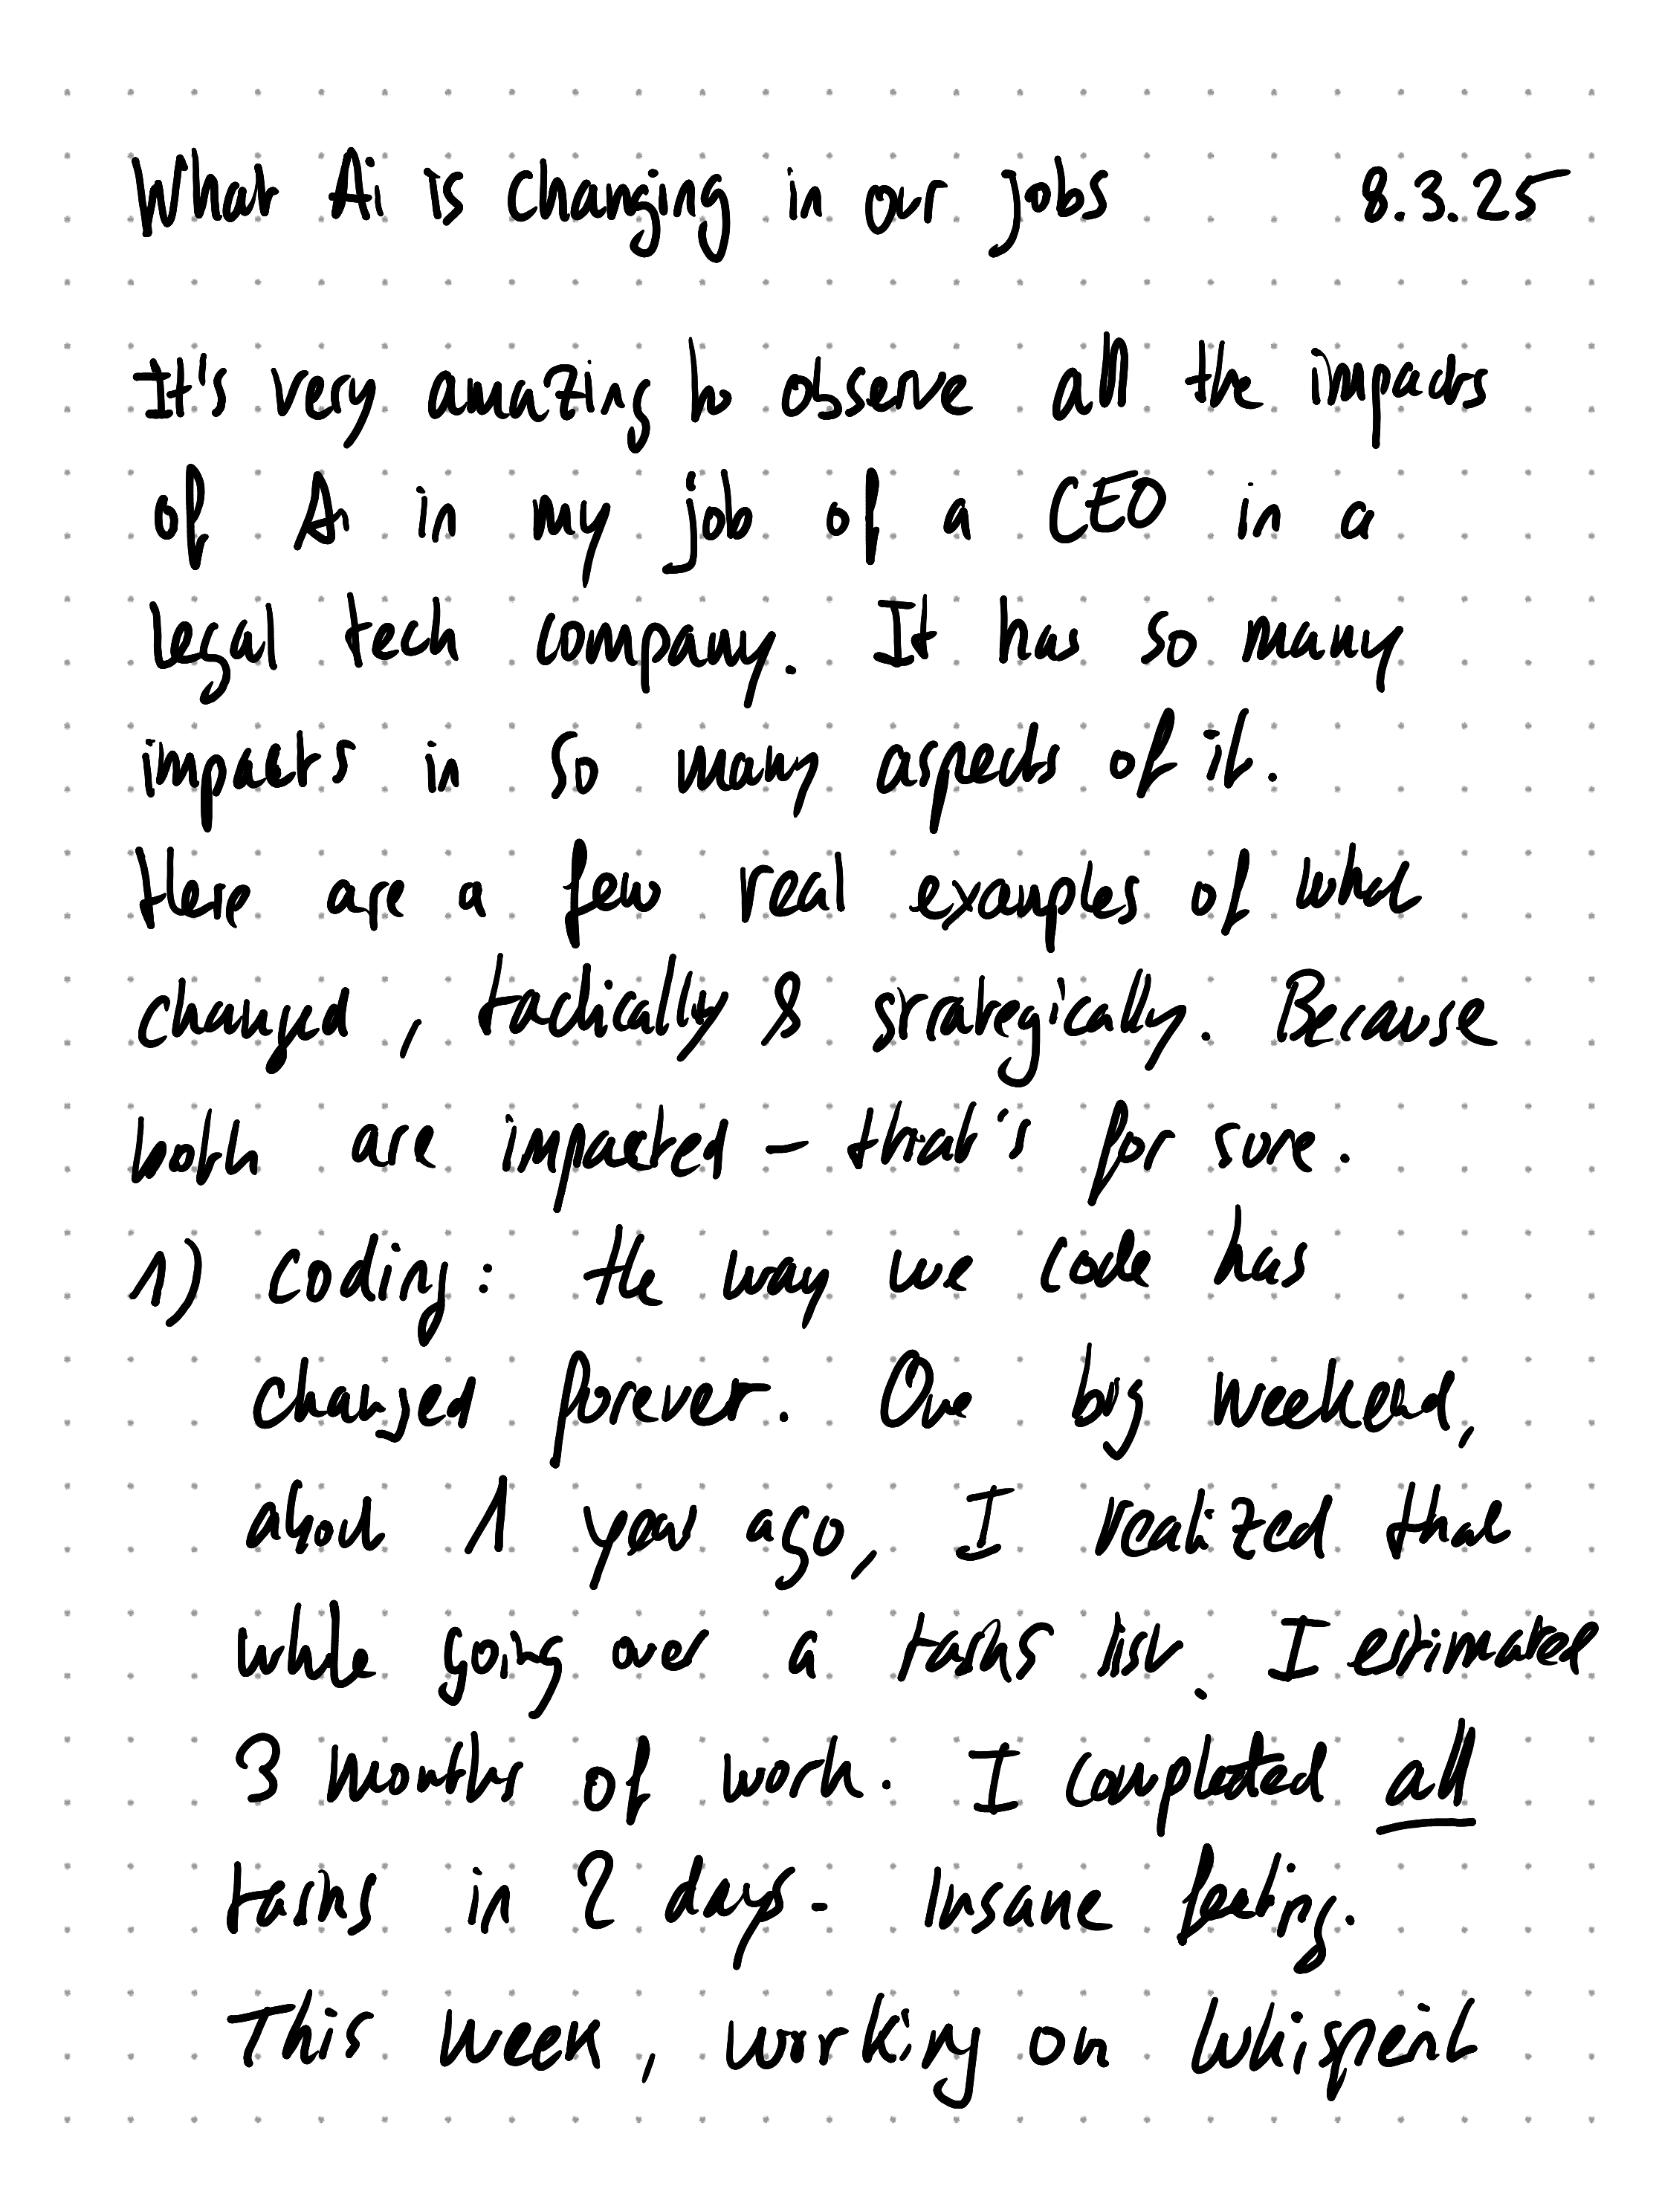 What Ai is changing in our jobs 8.3.25
It's very amazing to observe all the impacts
of Ai in my job of a CEO in a
legal tech company. It has so many
impacts in so many aspects of it.
Here are a few real examples of what
changed, tactically & strategically. Because
both are impacted – that's for sure.
1) Coding: the way we code has
changed forever. One big weekend,
about 1 year ago, I realized that
while going over a tasks list. I estimated
3 months of work. I completed all
tasks in 2 days - Insane feeling.
This week, working on Whisperit